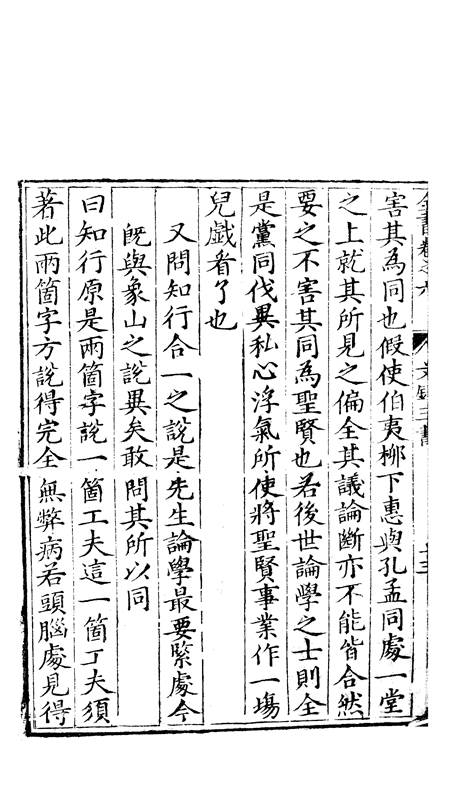 全書卷之六 文錄三書 十三
害其為同也假使伯夷柳下惠與孔孟同處一堂
之上就其所見之偏全其議論斷亦不能皆合然
要之不害其同為聖賢也若後世論學之士則全
是黨同伐異私心浮氣所使將聖賢事業作一場
兒戲看了也
又問知行合一之說是先生論學最要緊處今
既與象山之說異矣敢問其所以同
曰知行原是兩箇字說一箇工夫這一箇工夫須
著此兩箇字方說得完全無弊病若頭腦處見得